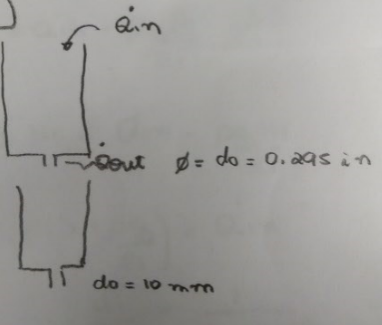 Q̇in
Q̇out ϕ = do = 0.295 in
do = 10 mm